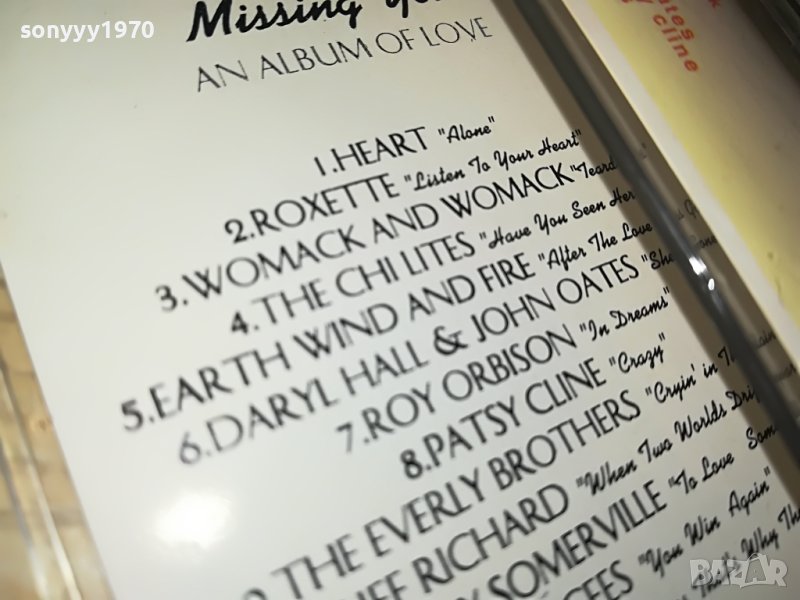 sonyyy1970
Missing
AN ALBUM OF LOVE
1.HEART "Alone"
2.ROXETTE "Listen To Your Heart"
3.WOMACK AND WOMACK
4.THE CHI LITES "Have You Seen Her
5.EARTH WIND AND FIRE "After The Love
6.DARYL HALL & JOHN OATES
7.ROY ORBISON "In Dreams"
8.PATSY CLINE "Crazy"
THE EVERLY BROTHERS "Cryin' in
RICHARD "When Two Worlds
SOMERVILLE "To Love
"You Win Again"
That's Why
Cline
BAZAR